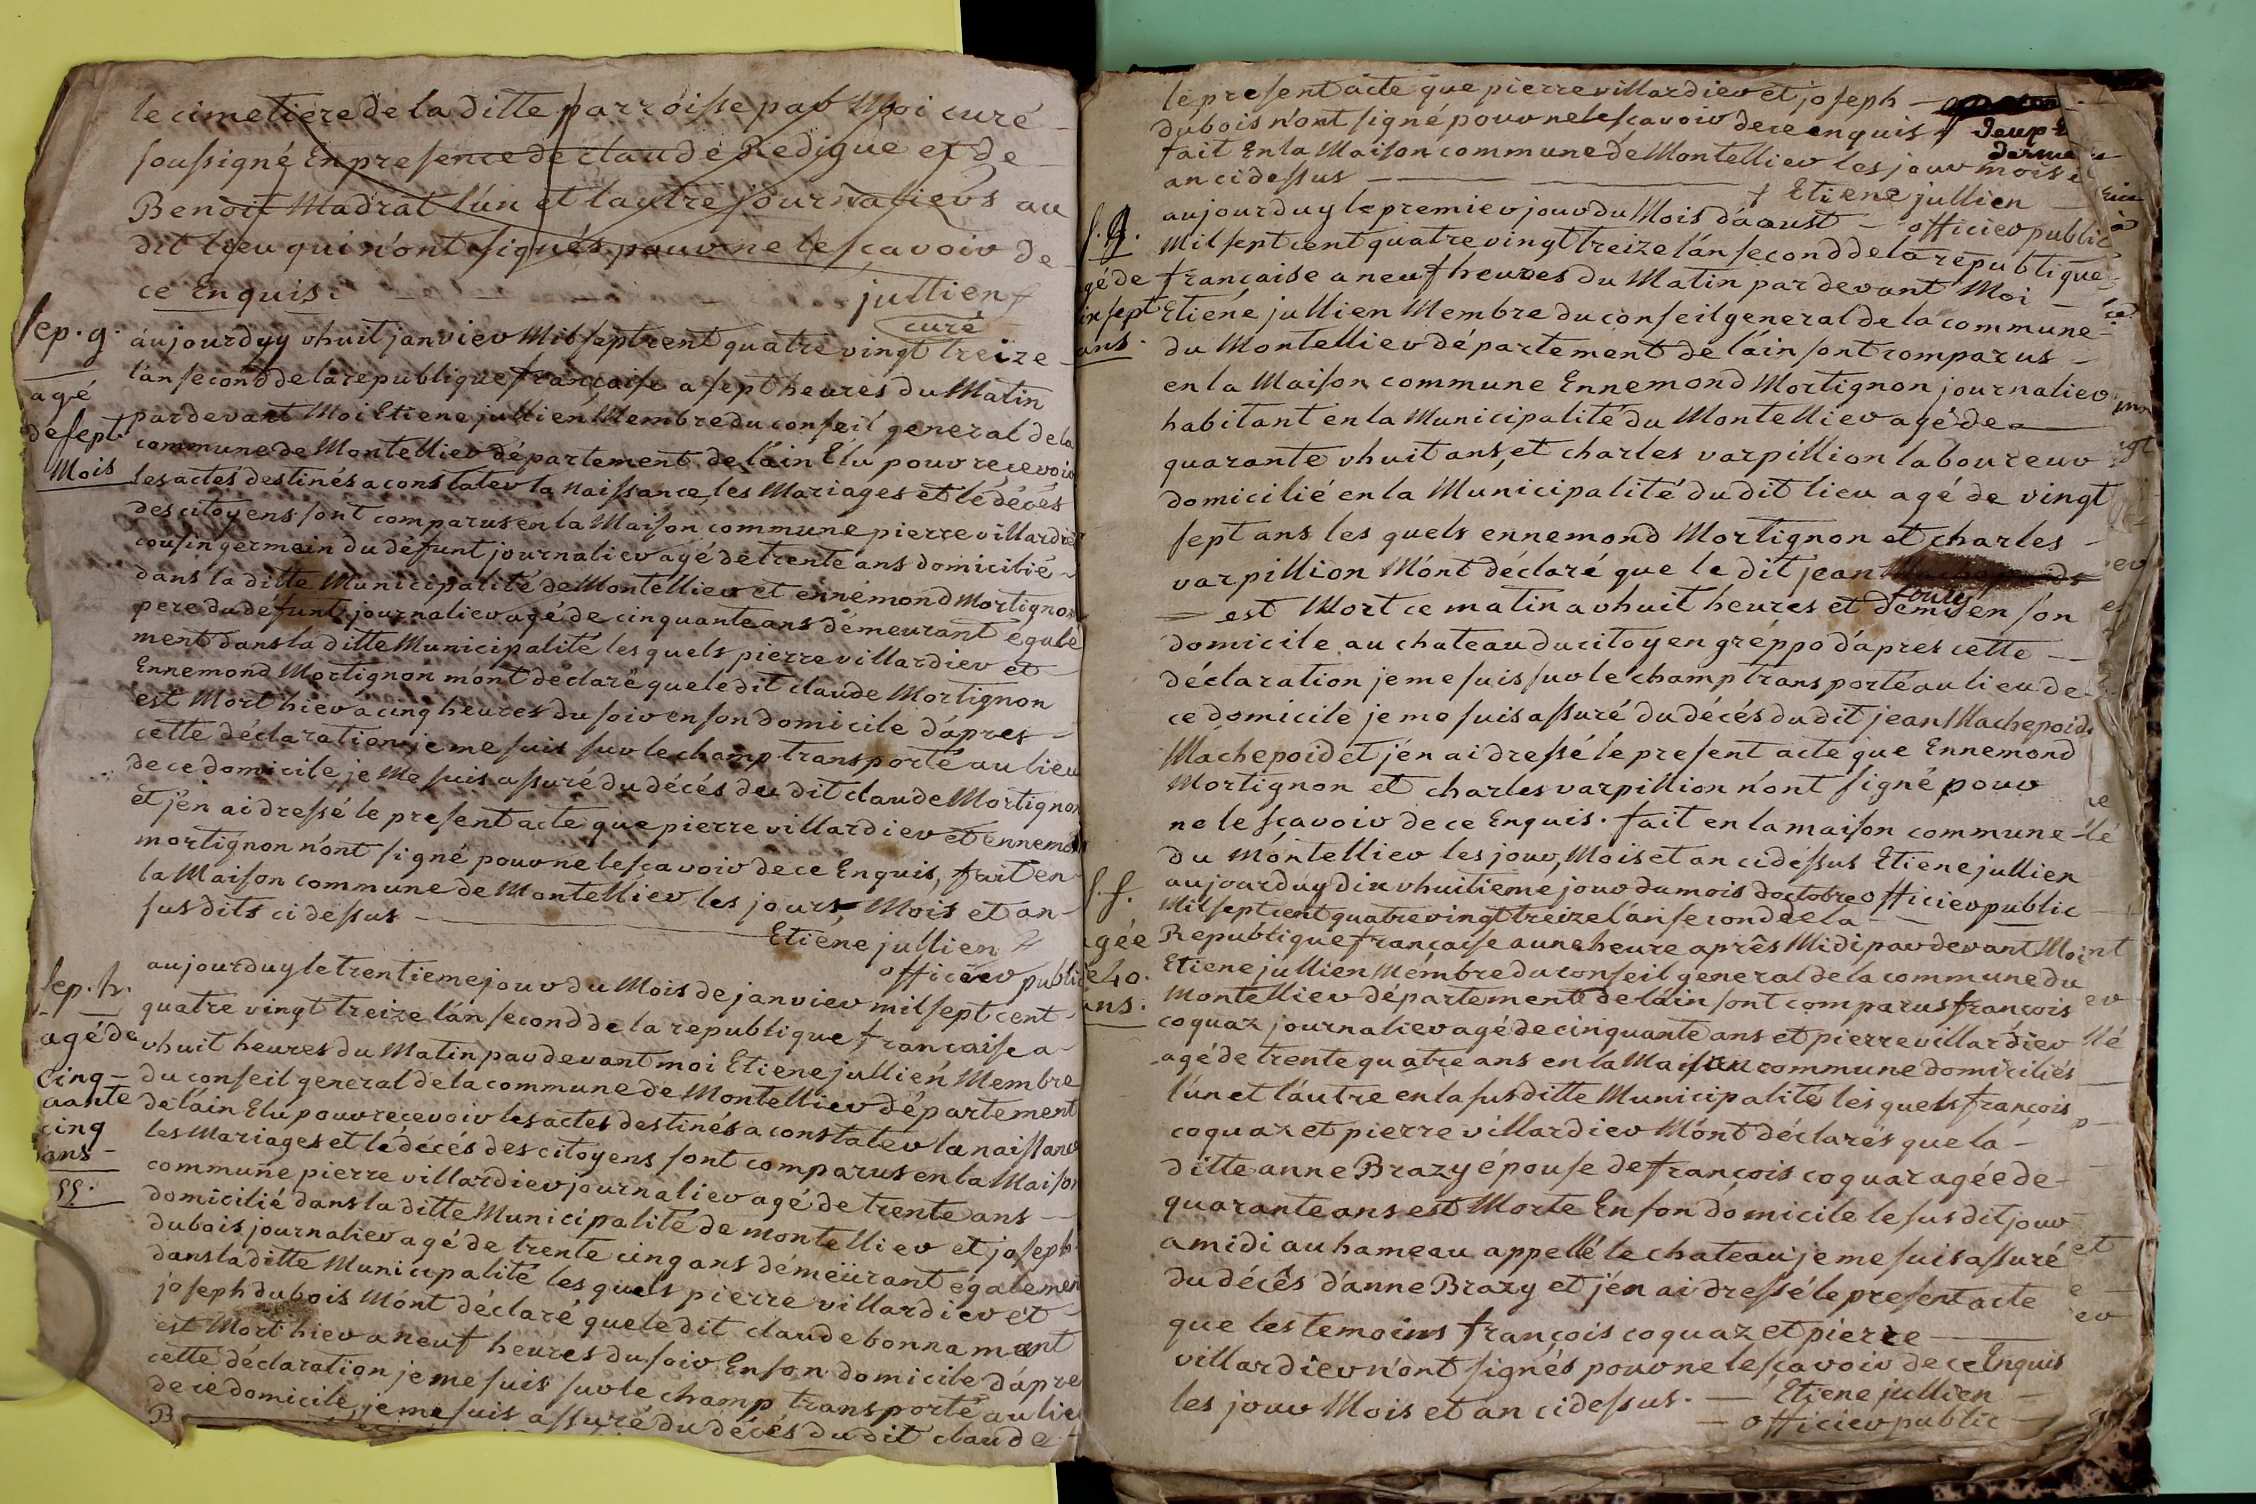 le cimetiere de la ditte parroisse par Moi curé
soussigné En presence de claude Redigue et de
Benoit Madrat l'un et lautre journaliers au
dit lieu qui n'ont signés pour ne le scavoir de
ce Enquis: jullien
curé
sep. g.
agé
de sept
Mois
aujourduy vhuit janvier Mil sept cent quatre vingt treize
lan second de la republique française a sept heures du Matin
pardevant Moi Etiene jullien Membre du conseil general de la
commune de Montellier département de láin Élu pour recevoir
les actes destinés a constater la Naissance, les Mariages et lé décés
des citoyens sont comparus en la Maison commune pierre villardier
cousin germain du défunt journalier agé de trente ans domicilié
dans la ditte Municipalité de Montellier et ennémond Mortignon
pere du défunt journalier agé de cinquante ans démeurant égale
ment dans la ditte Municipalité les quels pierre villardier et
Ennemond Mortignon mónt déclaré que le dit claude Mortignon
est Mort hier a cinq heures du soir en son domicile dápres
cette déclaration je me suis sur le champ transporté au lieu
de ce domicile je Me suis assuré du décés du dit claude Mortignon
et jén ai dressé le present acte que pierre villardier et ennemond
mortignon n'ont signé pour ne le scavoir de ce Enquis, fait en
la Maison commune de Montellier les jours, Mois et an
susdits ci dessus
Etiéne jullien
officier public
sep. h.
agé de
Cinq-
uante
cinq
ans
aujourduy le trentieme jour du Mois de janvier mil sept cent
quatre vingt treize lán second de la republique francaise a
vhuit heures du Matin par devant moi Etiene jullien Membre
du conseil general de la commune de Montellier département
de láin Elu pour recevoir les actes destinés a constater la naissance
les Mariages et lé décés des citoyens sont comparus en la Maison
commune pierre villardier journalier agé de trente ans
domicilié dans la ditte Municipalité de montellier et joseph
dubois journalier agé de trente cinq ans démeürant égalemen
dans la ditte Municipalité les quels pierre villardier et
joseph dubois Mónt déclaré que le dit claude bonnamant
est Mort hier a neuf heures du soir En son domicile dápre
cette déclaration je me suis sur le champ transporté au lieu
de ce domicile, je me suis assuré du décés du dit claude
le present acte que pierre villardier et joseph
dubois n'ont signé pour ne le scavoir de ce enquis
fait En la Maison commune dé Montellier les jour mois
an ci dessus
Etiene jullien
officier public
gé de
sept
ans.
aujourduy le premier jour du Mois dáoust
Mil sept cent quatre vingt treize lán second de la république
française a neuf heures du Matin par devant Moi
Etiéne jullien Membre du conseil general de la commune
du Montellier département de láin sont comparus
en la Maison commune Ennemond Mortignon journalier
habitant en la Municipalité du Montellier agé de
quarante vhuit ans, et charles varpillion laboureur
domicilié en la Municipalité du dit lieu agé de vingt
sept ans les quels ennemond Mortignon et charles
varpillion Mónt déclaré que le dit jean
est Mort ce matin a vhuit heures et demis en són
domicile au chateau du citoyen gréppo dápres cette
déclaration je me suis sur le champ transporté au lieu de
ce domicile je me suis assuré du décés du dit jean Machepoid
Machepoid et jén ai dressé le present acte que Ennemond
Mortignon et charles varpillion n'ont signé pour
ne le scavoir de ce Enquis. fait en la maison commune
du móntellier les jour, Mois et an ci dessus Etiene jullien
officier public
s. f.
agée
de 40.
ans.
aujourduy dix vhuitieme jour du mois doctobre
Mil sept cent quatre vingt treize lán second de la
République française a une heure aprês Midi par devant Moi
Etiene jullien Mémbre du conseil general de la commune du
Montellier département de láin sont comparus françois
coquaz journalier agé de cinquante ans et pierre villardier
agé de trente quatre ans en la Maison commune domiciliés
l'un et láutre en la susditte Municipalité les quels françois
coquaz et pierre villardier Mónt déclarés que la
ditte anne Brazy épouse de françois coquaz agée de
quarante ans est Morte En són domicile le susdit jour
a midi au hameau appellé le chateau je me suis assuré
du décês dánne Brazy et jén ai dressé le present acte
que les temoins françois coquaz et pierre
villardier n'ont signés pour ne le scavoir de ce Enquis
les jour Mois et an ci dessus. Etiene jullien
officier public